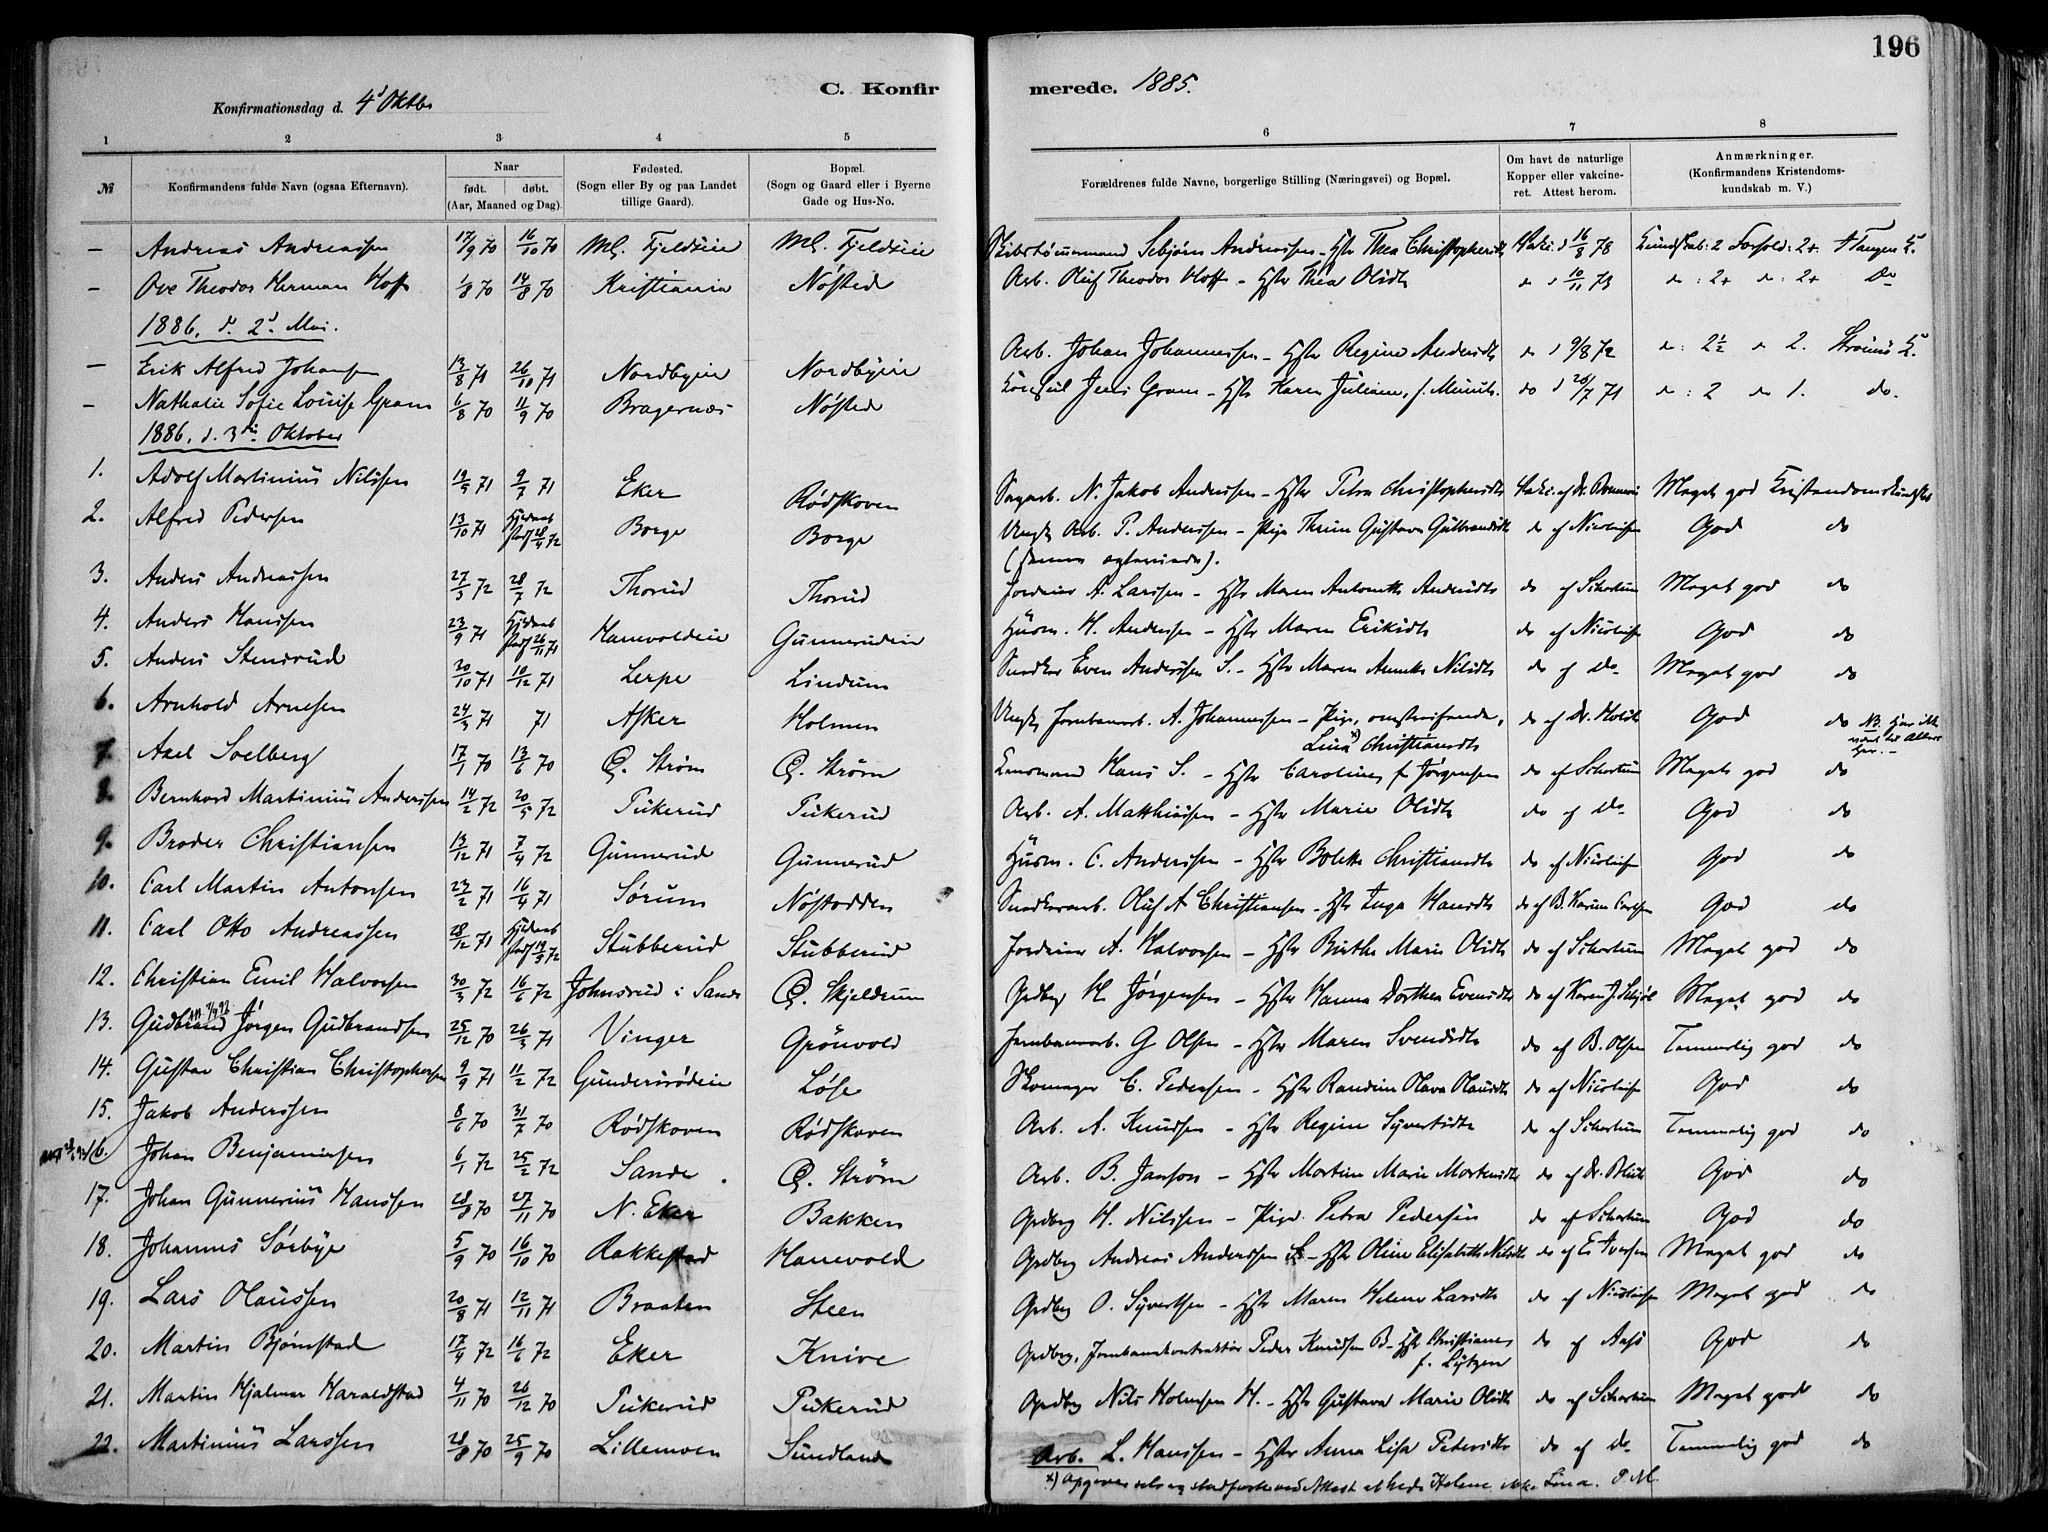 196
Konfirmationsdag d. 4d Oktbr
C. Konfirmerede. 1885.
1 2 3 4 5 6 7 8
№ Konfirmandens fulde Navn (ogsaa Efternavn). Naar født. døbt. (Aar, Maaned og Dag). Fødested. (Sogn eller By og paa Landet tillige Gaard). Bopæl. (Sogn og Gaard eller i Byerne Gade og Hus-No. Forældrenes fulde Navne, borgerlige Stilling (Næringsvei) og Bopæl. Om havt de naturlige Kopper eller vakcineret. Attest herom. Anmærkninger. (Konfirmandens Kristendomskundskab m. V.)
– Andreas Andreassen 17/9 70 16/10 70 Fjeldseie Fjeldseie Andreassen – Hstr Thea Christophersdtr 16/8 78 Kundskab: 2 Forhold: 2+ Tangen
– Ove Theodor Herman Hoff 1/8 70 14/8 70 Kristiania Nøsted Arb. Oluf Theodor Hoff – Hstr Thea Olsdtr 10/11 73 2+ 2+ Do
1886. d. 2d. Mai.
– Erik Alfred Johansen 13/8 71 26/10 71 Nordbyeie Nordbyeie Arb. Johan Johannessen – Hstr Regine Andersdtr 9/8 72 2½ 2. Strømsø
– Nathalie Sofie Louise Gram 6/8 70 11/9 70 Bragernæs Nøsted Konsul Jens Gram – Hstr Karen Juliane, f. do d 20/7 71 2 1. do.
1886. d. 3die Oktober
1. Adolf Martinius Nilssen 19/5 71 9/7 71 Eker Rødskoven Sagarb. N. Jakob Anderssen – Hstr Petra Christophersdtr Vakc. af Dr. Meget god Kristendomskundskab
2. Alfred Pedersen 13/10 71 Hjemmed. stadf 28/4 72 Borge Borge Ungk. Arb. P. Anderssen – Pige Thrine Gustava Gulbrandsdtr do af Nicolaisen God do
3. Anders Andreassen 27/3 72 28/7 72 Thorud Thorud Jordeier A. Larssen – Hstr Maren Antonette Andersdtr do af Schartum Meget god do
4. Anders Hanssen 23/9 71 Hjemmed. stadf 26/11 71 Hanevoldeie Gunnerudeie Husm. H. Anderssen – Hstr Maren Eriksdtr do af Nicolaisen God do
5. Anders Stensrud 20/10 71 10/12 71 Lerpe Lindum Snedker Even Anderssen S. – Hstr Maren Annette Nilsdtr do af Do Meget god do
6. Arnhold Arnesen 24/3 71 71 Asker Holmen Ungk. Jernbanearb. A. Johannessen – Pige, omstreifende, do af Dr. Holst God do
Lina x) Christiansdtr
7. Axel Soelberg 17/1 70 13/6 70 Ø. Strøm Ø. Strøm Lensmand Hans S. – Hstr Caroline f. Jørgensen do af Schartum Meget god do
8. Bernhard Martinius Anderssen 14/2 72 20/5 72 Pukerud Pukerud Arb. A. Matthiassen – Hstr Marie Olsdtr do af Do God do
9. Broder Christiansen 13/12 71 7/4 72 Gunnerud Gunnerud Husm. C. Anderssen – Hstr Bolette Christiansdtr do af Nicolaisen God do
10. Carl Martin Antonsen 27/2 71 16/4 71 Sørum Nøstodden Snedkerarb. Oluf A Christiansen – Hstr Inga Hansdtr do af B. Karine Carlsen God do
11. Carl Otto Andreassen 28/12 71 Hjemmed. stadf 19/5 72 Stubberud Stubberud Jordeier A. Halvorsen – Hstr Birthe Marie Olsdtr do af Schartum Meget god do
12. Christian Emil Halvorsen 30/3 72 16/6 72 Johnsrud i Sande Ø. Skjeldrum Grdbrg H. Jørgensen – Hstr Hanna Dorthea Evensdtr do af Karen Meget god do
13. Gudbrand Jörgen Gudbrandsen 25/12 70 26/3 71 Vinger Grönvold Jernbanearb. G Olsen – Hstr Maren Svendsdtr do af B. Olsen Temmelig god do
14. Gustav Christian Christophersen 9/9 71 11/2 72 Gundersrødeie Løse Skomager C. Pedersen – Hstr Randine Olava Olausdtr do af Nicolaisen God do
15. Jakob Anderssen 8/6 70 31/7 70 Rødskoven Rødskoven Arb. A. Knudsen – Hstr Regine Syvertsdtr do af Schartum Temmelig god do
16. Johan Benjaminsen 6/1 72 25/2 72 Sande Ø. Strøm Arb. B. Janson – Hstr Martine Marie Mortensdtr do af Dr. God do
17. Johan Gunnerius Hanssen 28/8 70 27/11 70 N. Eker Bakken Grdbrg H. Nilssen – Pige Petra Pedersen do af Schartum God do
18. Johannes Sørbye 5/9 70 16/10 70 Rakkestad Hanevold Grdbrg Andreas Anderssen S – Hstr Oline Elisabeth Nilsdtr do af E. Iversen Meget god do
19. Lars Olaussen 20/8 71 12/11 71 Braaten Steen Grdbrg O. Syvertsen – Hstr Maren Helene Larsdtr do af Nicolaisen Meget god do
20. Martin Bjørnstad 17/4 72 16/6 72 Eker Knive Grdbrg, Jernbanekontraktør Peder Knudsen B – Hstr Christiane do af Aass God do
f. Lÿtzen
21. Martin Hjalmar Haraldstad 4/11 70 26/12 70 Pukerud Pukerud Grdbrg Nils Holmsen H. – Hstr Gustava Marie Olsdtr do af Schartum Meget god do
22. Martinius Larssen 28/8 70 25/9 70 Lillemoen Sundland Arb. L. Hanssen – Hstr Anna Lisa Pedersdtr do af do Temmelig god do
x) Opgiver selv Attest at hede Helene ikke Lina. P. M.